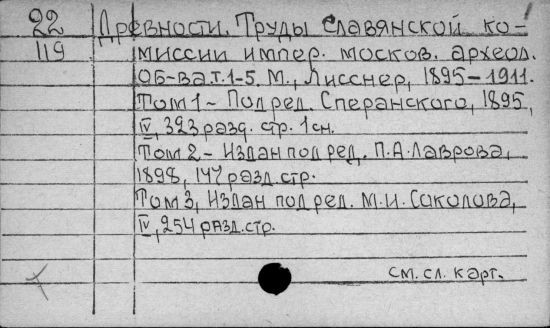 22 Древности. Труды славянской ко-
119 миссии импер. москов. археол.
об-ва. т. 1-5. М., Лисснер, 1895-1911.
Том 1 - Под ред. Сперанского, 1895,
IV, 323 разд. стр. 1 сн.
Том 2 - Издан под ред. П.А. Лаврова,
1898, 147 разд. стр.
Том 3, Издан под ред. М.И. Соколова,
IV, 254 разд. стр.
см. сл. карт.